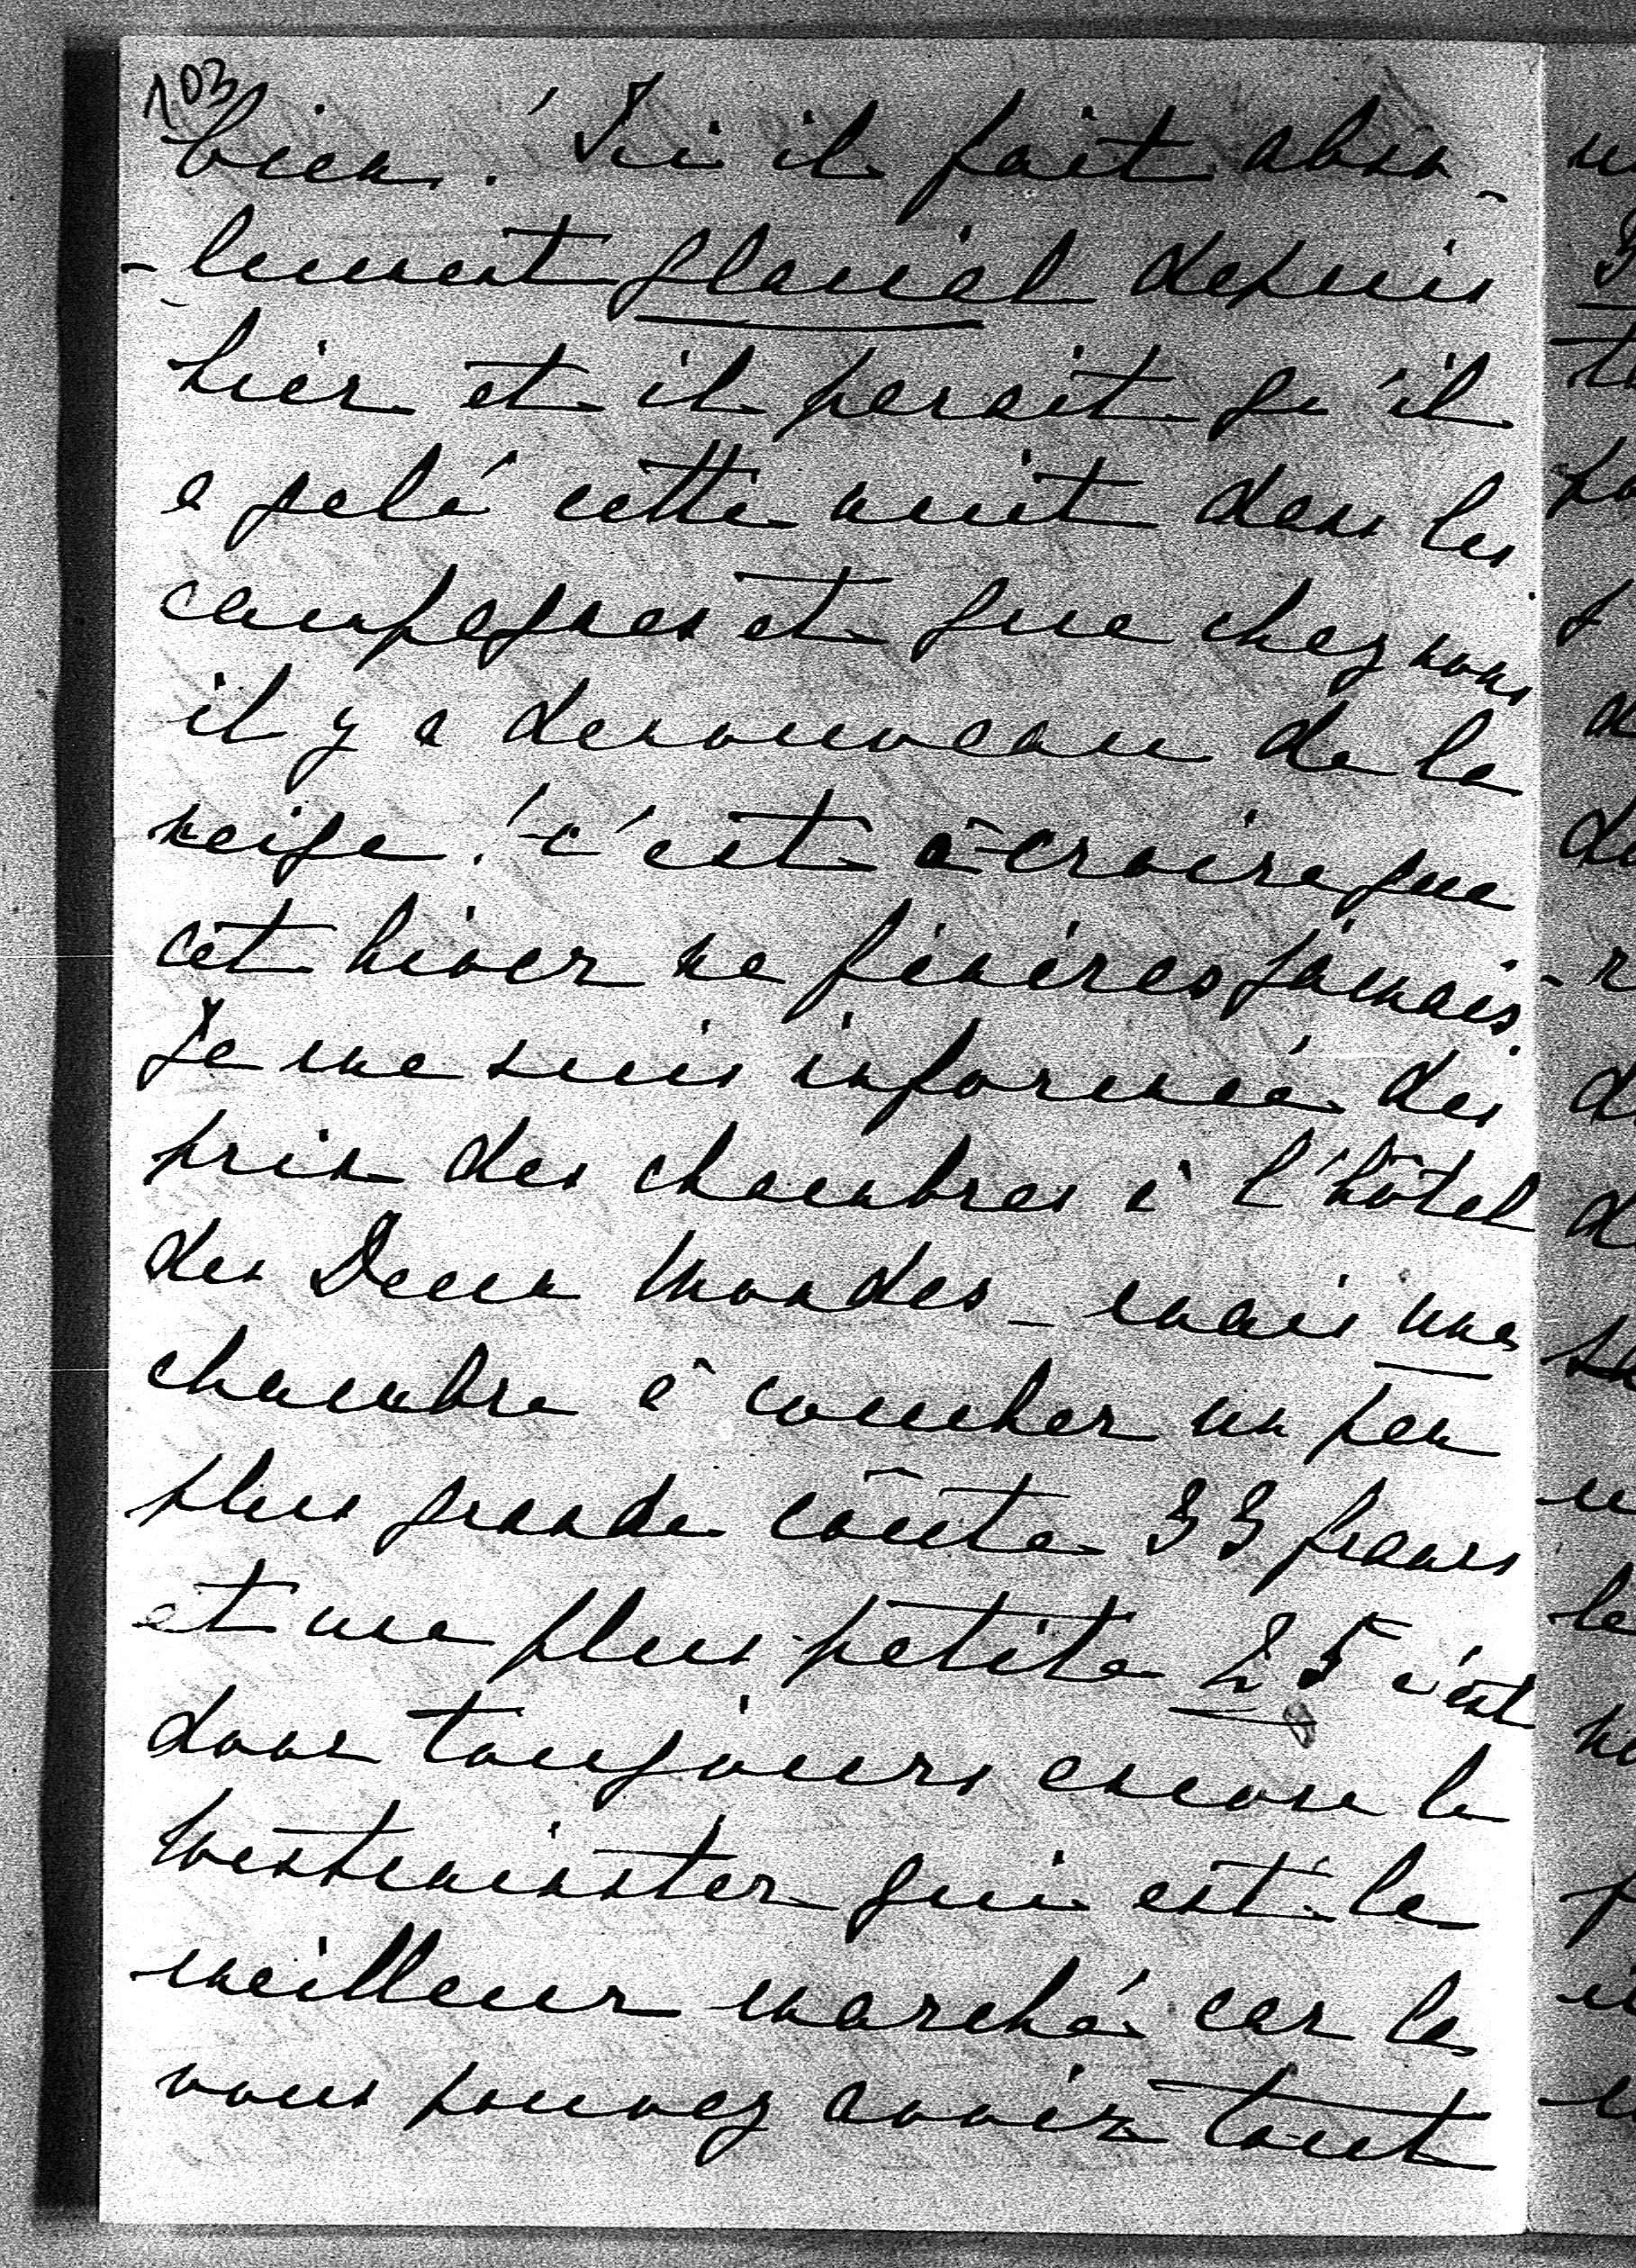 103
bien! Ici il fait abso-
-lument glacial depuis
hier et il parait qu'il
a gelé cette nuit dans les
campagnes et que chez nous
il y a denouveau de la
neige! c'est à croire que
cet hiver ne finiras jamais.
Je me suis informée des
prix des chambres à l'hôtel
des Deux Mondes – mais une
chambre à coucher un peu
plus grande coûte 33 francs
et une plus petite 25 c'est
donc toujours encore le
Westminster qui est le
meilleur marché car la
vous pouvez avoir tout